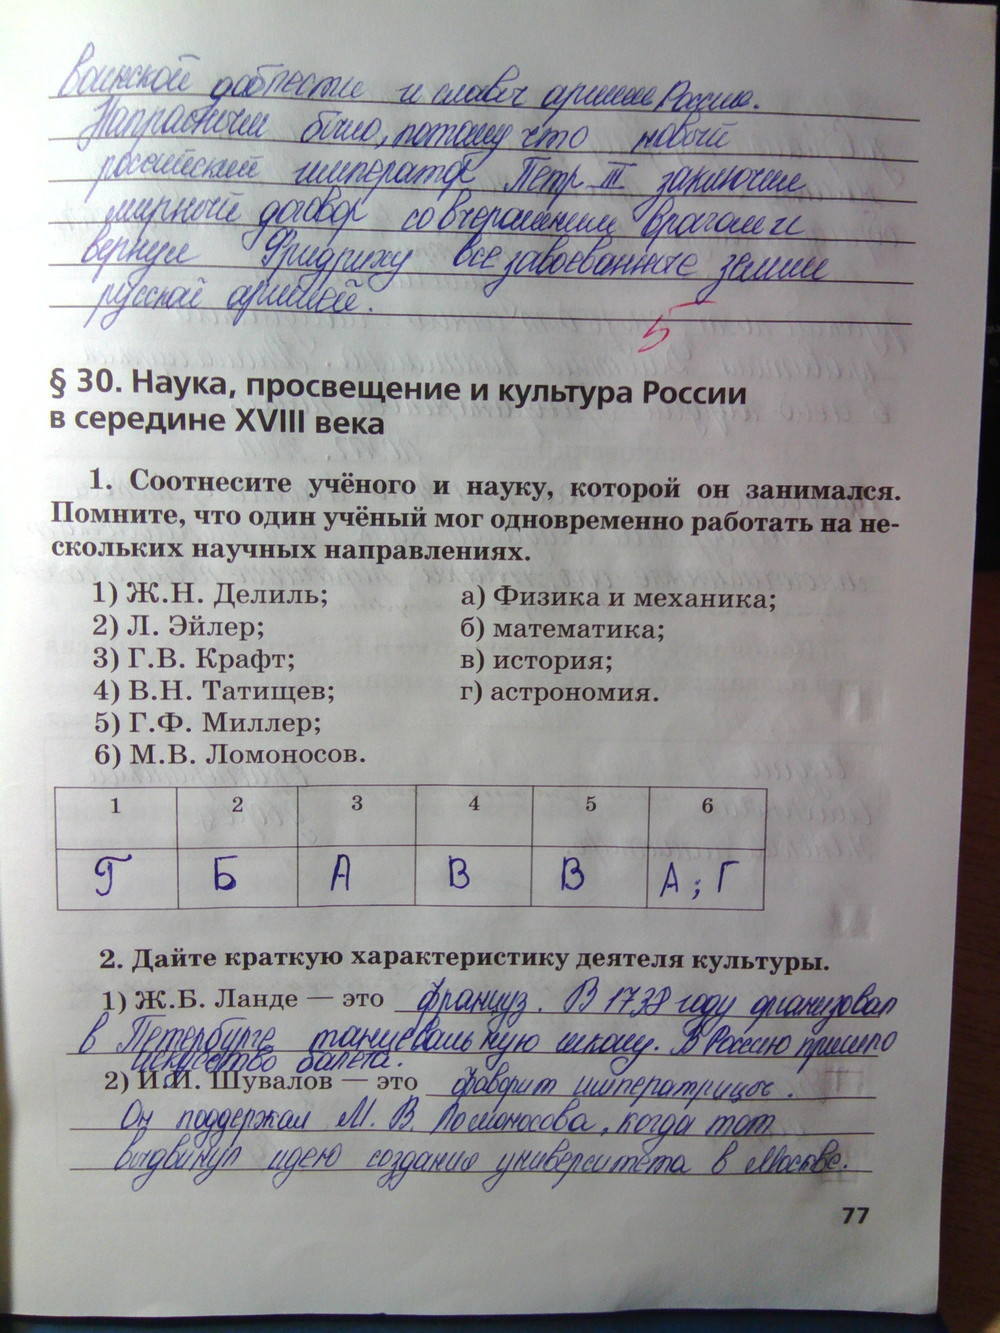 воинской доблести и славы армии России.
Напрасными было, потому что новый
российский император Петр III заключил
мирный договор со вчерашним врагом и
вернул Фридриху все завоеванные земли
русской армией.
5
§ 30. Наука, просвещение и культура России
в середине XVIII века
1. Соотнесите учёного и науку, которой он занимался.
Помните, что один учёный мог одновременно работать на не-
скольких научных направлениях.
1) Ж.Н. Делиль;
2) Л. Эйлер;
3) Г.В. Крафт;
4) В.Н. Татищев;
5) Г.Ф. Миллер;
6) М.В. Ломоносов.
а) Физика и механика;
б) математика;
в) история;
г) астрономия.
1 2 3 4 5 6
Г Б А В В А; Г
2. Дайте краткую характеристику деятеля культуры.
1) Ж.Б. Ланде — это француз. В 1738 году организовал
в Петербурге танцевальную школу. В Россию пришло
искусство балета.
2) И.И. Шувалов — это фаворит императрицы.
Он поддержал М. В. Ломоносова, когда тот
выдвинул идею создания университета в Москве.
77